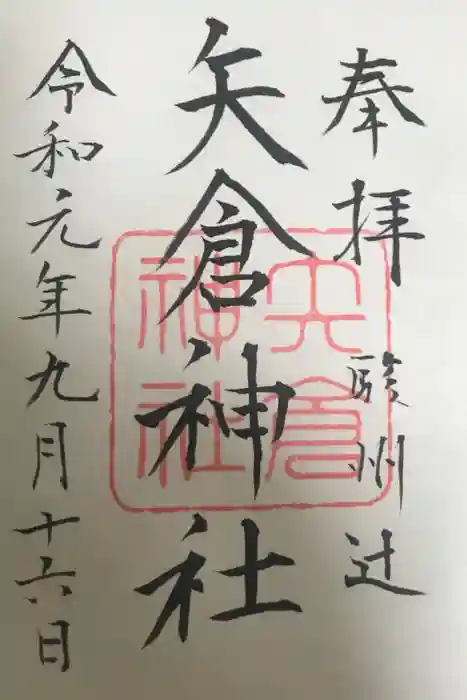 奉拝 駿州辻
矢倉神社
矢倉
神社
令和元年九月十六日